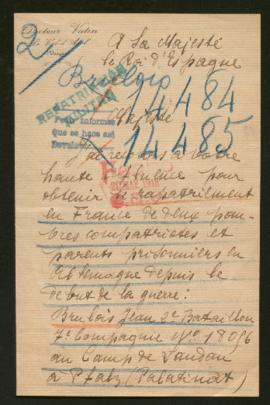 Docteur Vatin
A Sa Majesté
le Roi d'Espagne
2/
14484
REPATRIATION
Majesté
que informe
Que se hace asi
14485
J'ai recours à votre
haute influence pour
obtenir le rapatriement
en France de deux pau-
vres compatriotes et
parents prisonniers en
Allemagne depuis le
début de la guerre:
Jean 2e Bataillon
7e Compagnie No 18056
au Camp de Landau
à Pfalz (Palatinat)